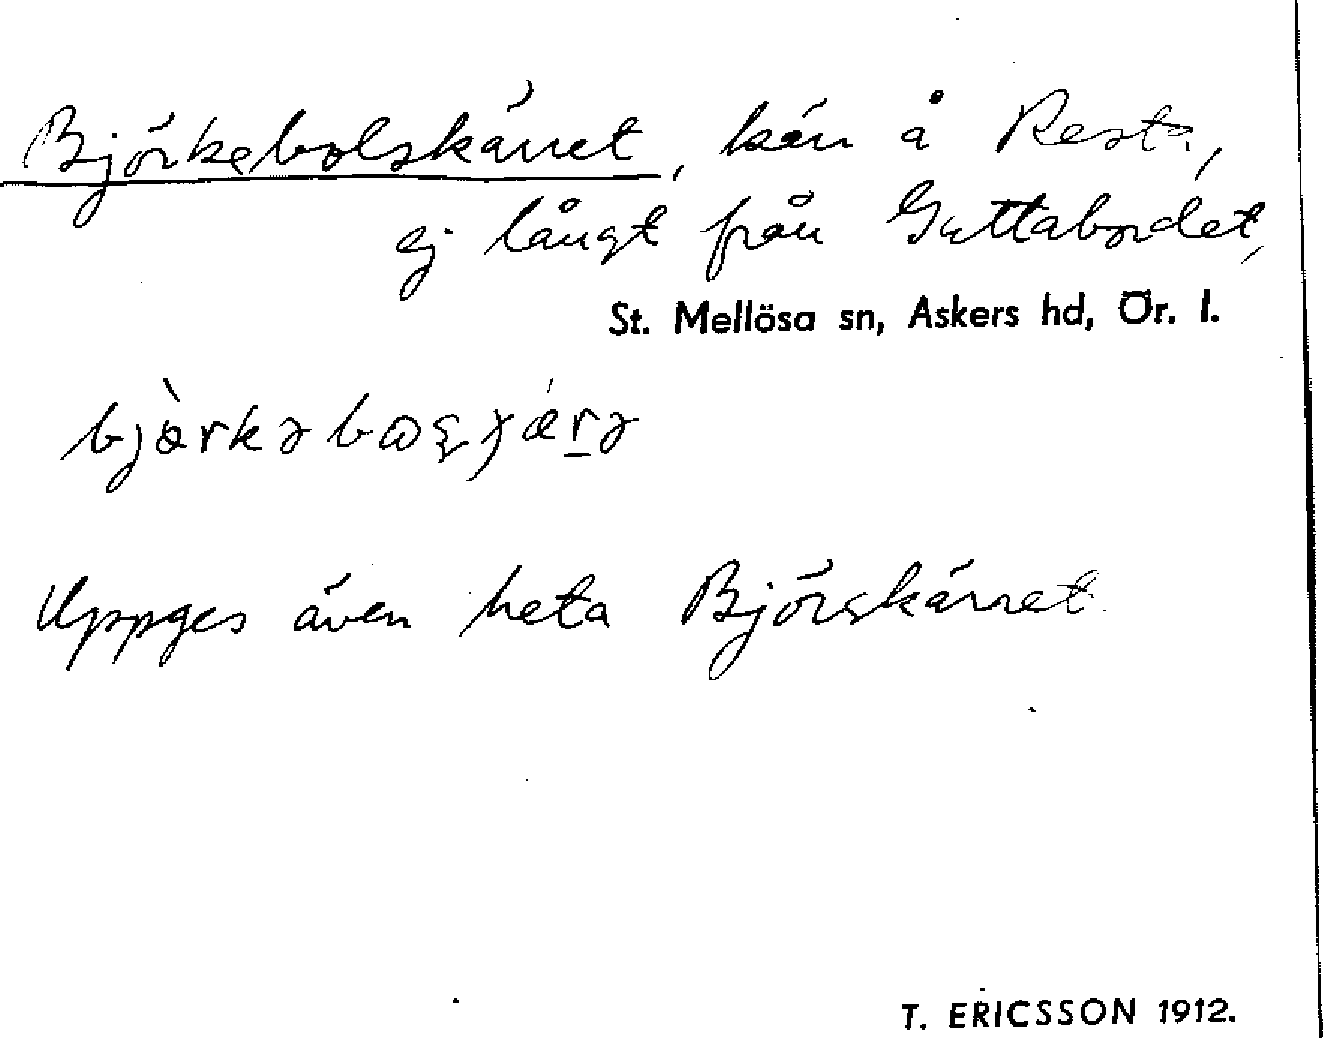 Björkebolskärret, kärr å Resta,
ej långt från Guttabordet,
St. Mellösa sn, Askers hd, Ör. l.
Uppges även heta Björskärret
T. ERICSSON 1912.